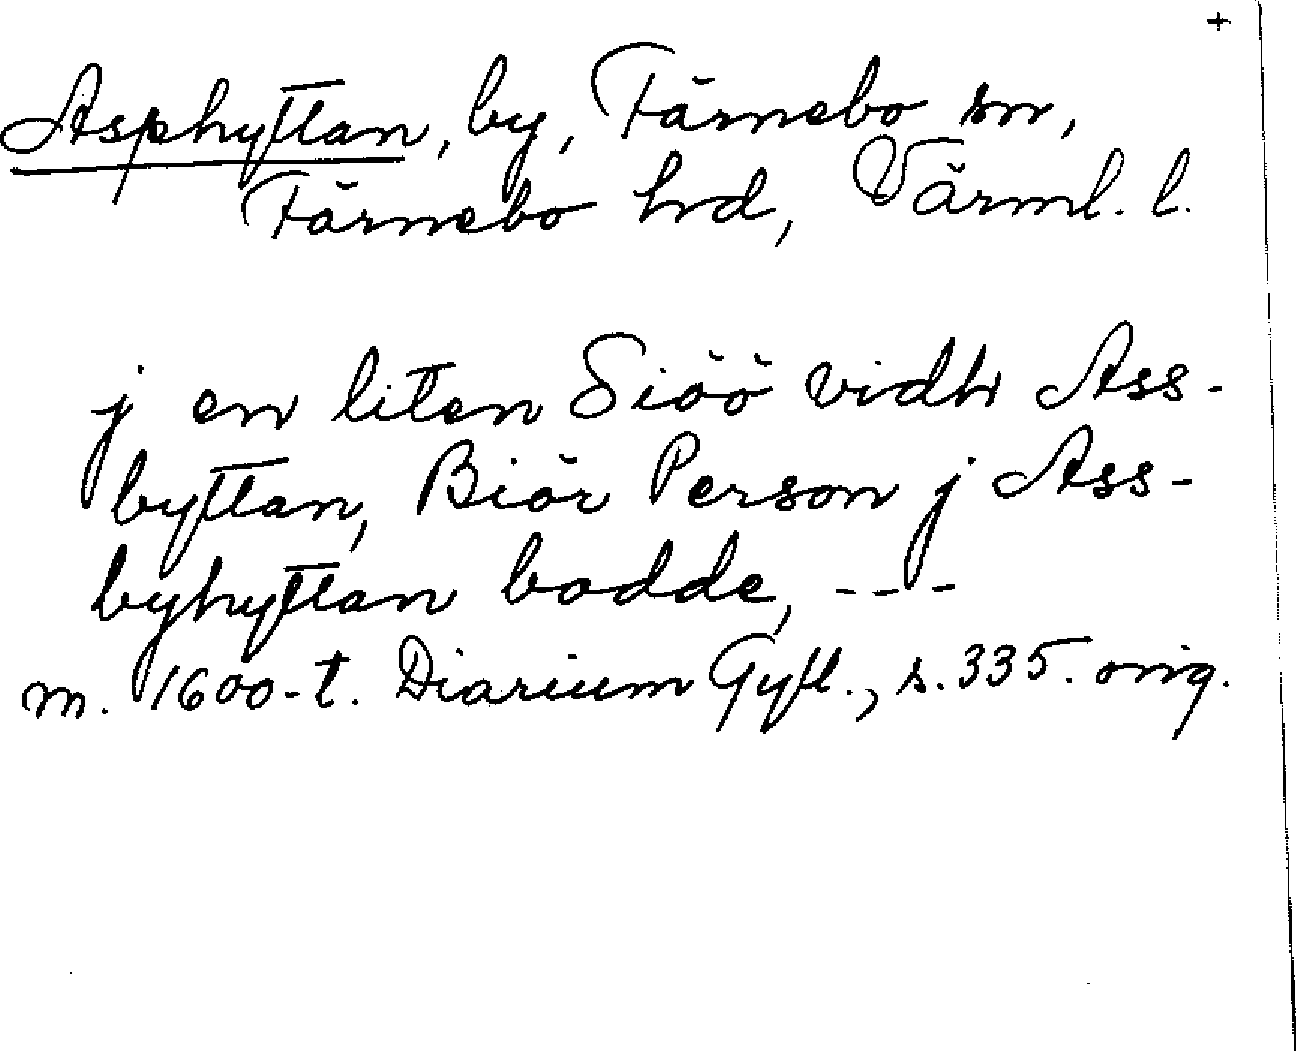 +
Asphyttan, by, Färnebo sn,
Färnebo hd, Värml. l.
j en liten Siöö vidh Ass-
byttan, Biör Person j Ass-
byhyttan bodde, ---
m. 1600-t. Diarium Gyll., s. 335. orig.